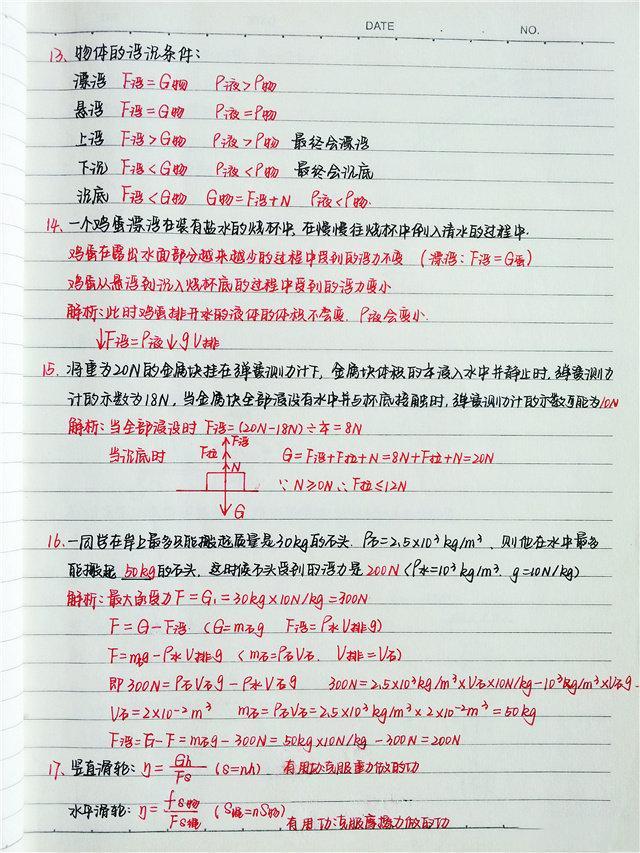 DATE NO.
13、物体的浮沉条件:
漂浮 F浮=G物 ρ液>ρ物
悬浮 F浮=G物 ρ液=ρ物
上浮 F浮>G物 ρ液>ρ物 最终会漂浮
下沉 F浮<G物 ρ液<ρ物 最终会沉底
沉底 F浮<G物 G物=F浮+N ρ液<ρ物
14、一个鸡蛋漂浮在装有盐水的烧杯中,在慢慢往烧杯中倒入清水的过程中.
鸡蛋在露出水面部分越来越少的过程中受到的浮力不变 (漂浮:F浮=G蛋)
鸡蛋从悬浮到沉入烧杯底的过程中受到的浮力变小
解析:此时鸡蛋排开水的液体的体积不会变.ρ液会变小.
↓F浮=ρ液↓gV排
15、将重为20N的金属块挂在弹簧测力计下,金属块体积的 浸入水中并静止时,弹簧测力
计的示数为18N,当金属块全部浸没有水中并与杯底接触时,弹簧测力计的示数可能为10N
解析:当全部浸没时 F浮=(20N-18N)÷ =8N
F浮
当沉底时 F拉 G=F浮+F拉+N=8N+F拉+N=20N
N ∵N≥0N∴F拉≤12N
G
16、一同学在岸上最多只能搬起质量是30kg的石头.ρ石=2.5×10³kg/m³、则他在水中最多
能搬起 50kg的石头,这时候石头受到的浮力是200N(ρ水=10³kg/m³.g=10N/kg)
解析:最大承受力F=G₁=30kg×10N/kg=300N
F=G-F浮.(G=m石g F浮=ρ水V排g)
F=m石g-ρ水V排g (m石=ρ石V石. V排=V石)
即300N=ρ石V石g-ρ水V石g 300N=2.5×10³kg/m³×V石×10N/kg-10³kg/m³×V石g.
V石=2×10⁻²m³ m石=ρ石V石=2.5×10³kg/m³×2×10⁻²m³=50kg
F浮=G-F=m石g-300N=50kg×10N/kg-300N=200N
17、竖直滑轮:η=Gh/Fs (s=nh) 有用功克服重力做的功
水平滑轮:η=fs物/Fs绳 (S绳=nS物) 有用功克服摩擦力做的功